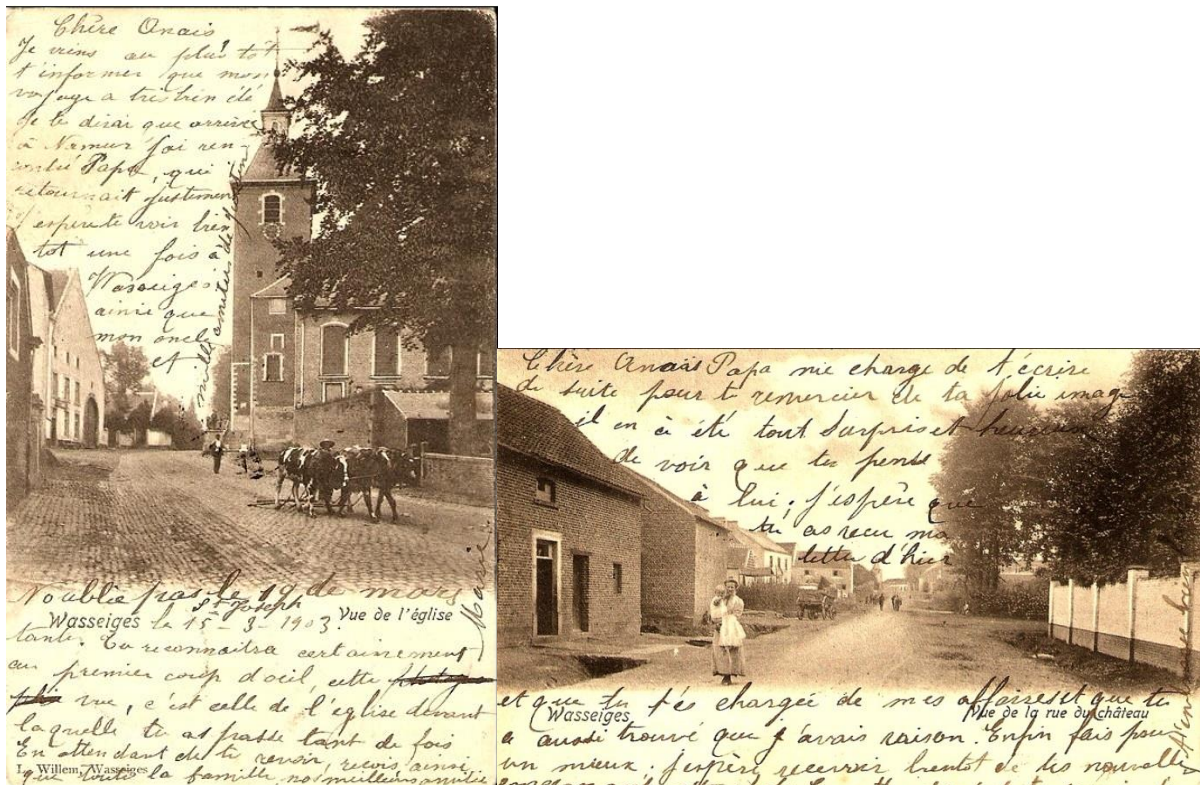 Chère Anaïs
Je viens au plus tôt
t'informer que mon
voyage a très bien été
Je te dirai que arrivée
à Namur j'ai ren-
contré Papa, qui
retournait justement
J'espère te voir bien
tôt une fois à
Wasseiges
ainsi que
mon oncle
et
mille amitiés de
N'oublie pas le 19 de mars
St Joseph
Wasseiges le 15-3-1903. Vue de l'église
tante. Tu reconnaitra certainement
au premier coup d'oeil, cette
vue, c'est celle de l'église devant
laquelle tu as passé tant de fois
En attendant de te revoir, reçois ainsi
que toute la famille, nos meilleurs amitié
L. Willem, Wasseiges
Marie
Chère Anaïs Papa me charge de t'écrire
de suite pour te remercier de ta jolie image
il en a été tout surpris et heureux
de voir que tu pense
à lui; j'espère que
tu as reçu ma
lettre d'hier
et que tu t'és chargée de mes affaires et que tu
Wasseiges Vue de la rue du château
a aussi trouvé que j'avais raison. Enfin fais pour
un mieux. J'espère recevoir bientot de tes nouvelles